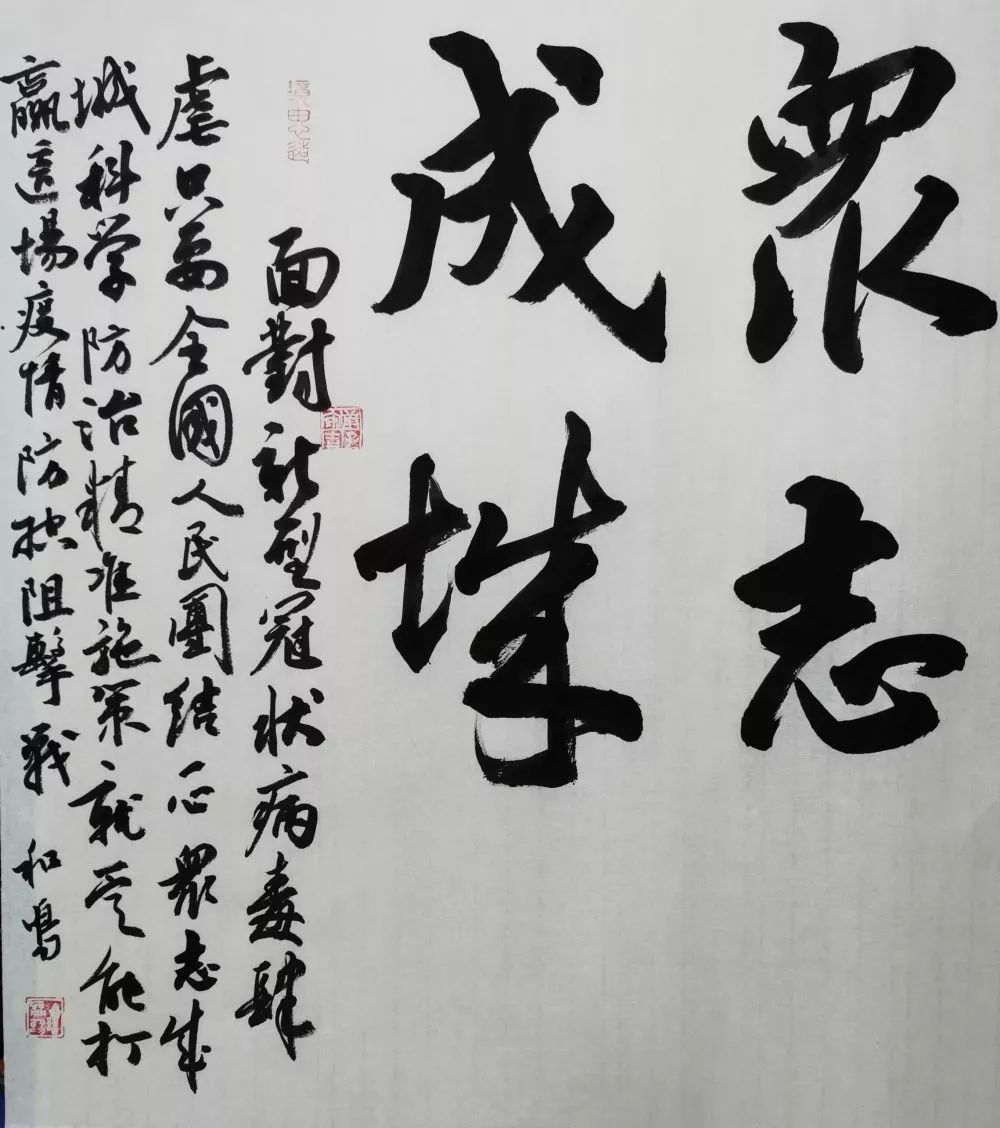 眾志
成城
面對新型冠状病毒肆
虐只要全國人民團結一心眾志成
城科学防治精准施策就一定能打
贏這場疫情防控阻擊戰 和鳴